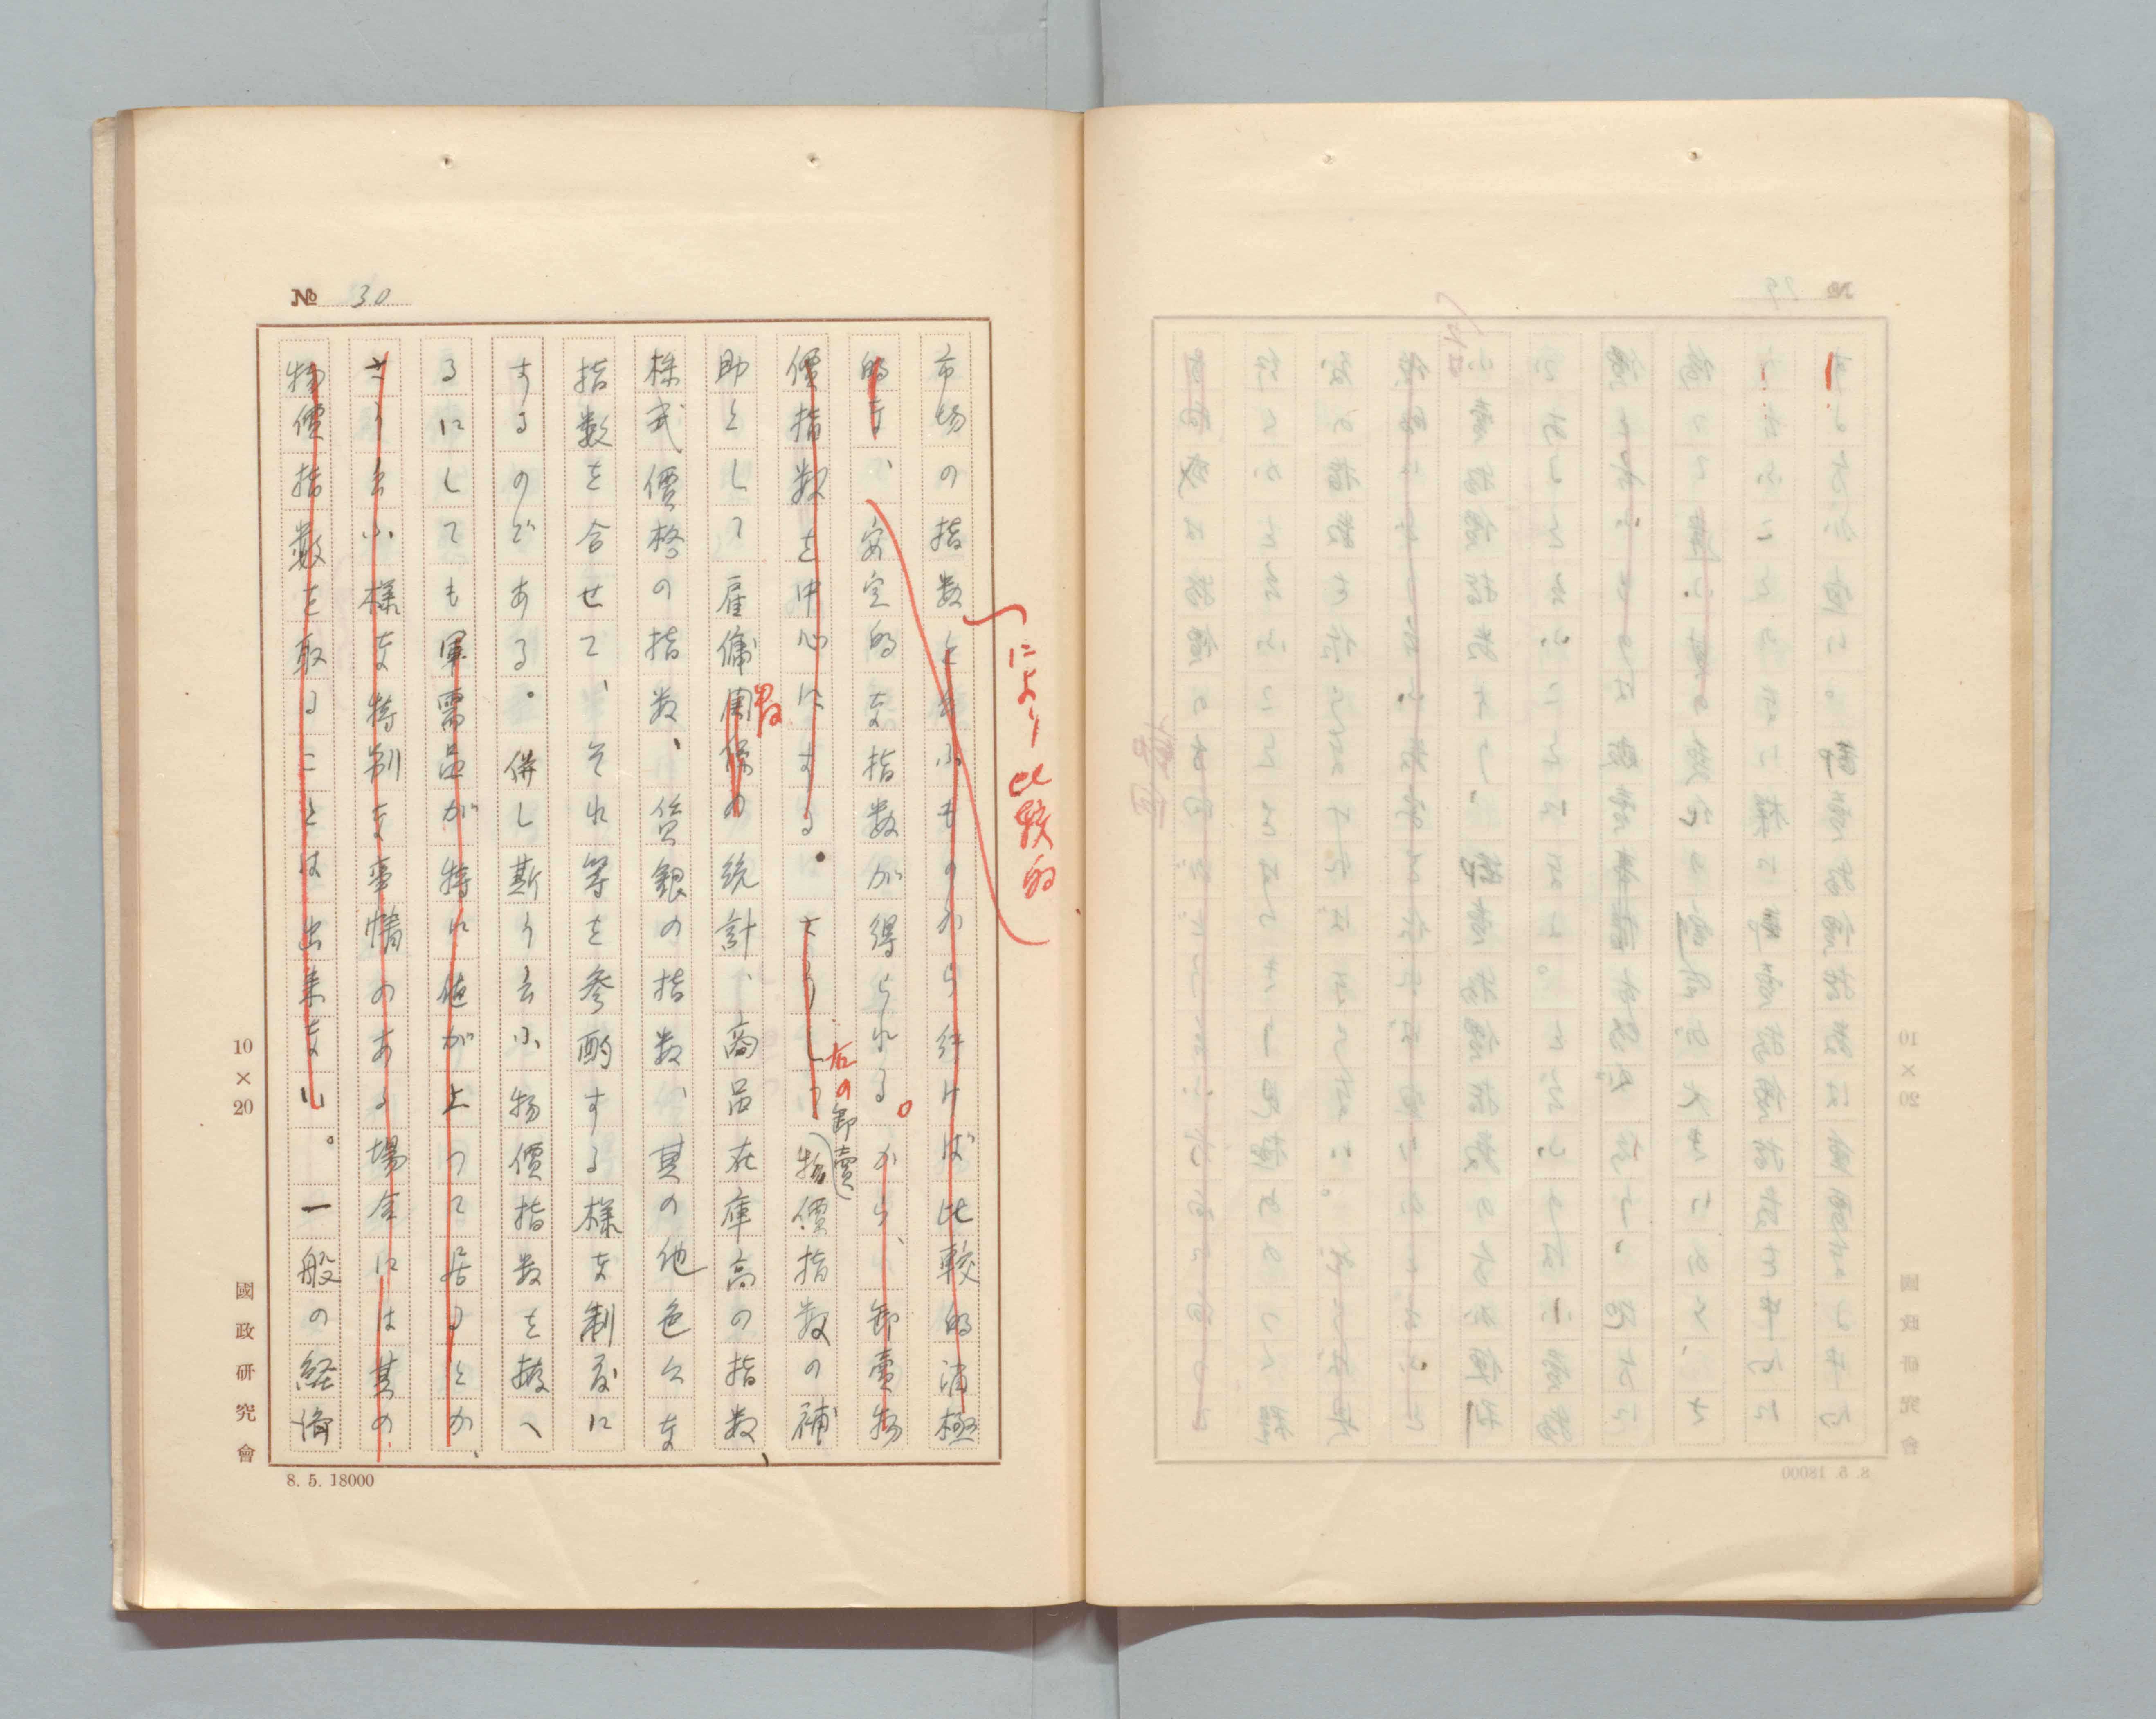 № 30
市場の指数と云ふものから行けば比較的消極
的な、安定的な指数が得られる。から、卸賣物
價指数を中心にする。さうして物價指数の補
助として雇傭関係の統計、商品在庫高の指数、
株式價格の指数、賃銀の指数、其の他色々な
指数を合せて、それ等を参酌する様な制度に
するのである。併し斯う云ふ物價指数を拵へ
るにしても軍需品が特に値が上つて居るとか、
さう云ふ様な特別な事情のある場合には其の
物價指数を取ることは出来ない。一般の経済
により比較的
右の卸賣
10×20
國政研究會
8. 5. 18000